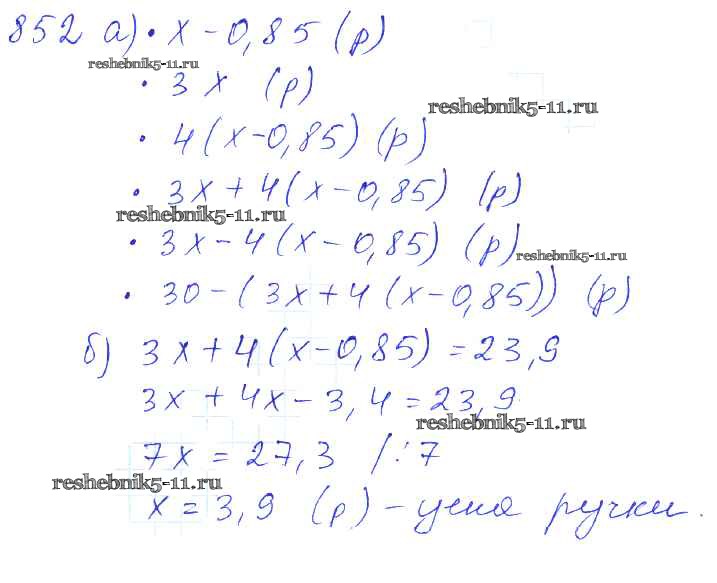 852 а) • x - 0,85 (р)
reshebnik5-11.ru
• 3x (р)
reshebnik5-11.ru
• 4(x-0,85) (р)
• 3x + 4(x-0,85) (р)
reshebnik5-11.ru
• 3x - 4(x-0,85) (р)
reshebnik5-11.ru
• 30-(3x+4(x-0,85)) (р)
б) 3x+4(x-0,85) = 23,9
3x + 4x - 3,4 = 23,9
reshebnik5-11.ru
7x = 27,3 /:7
reshebnik5-11.ru
x = 3,9 (р) - цена ручки.